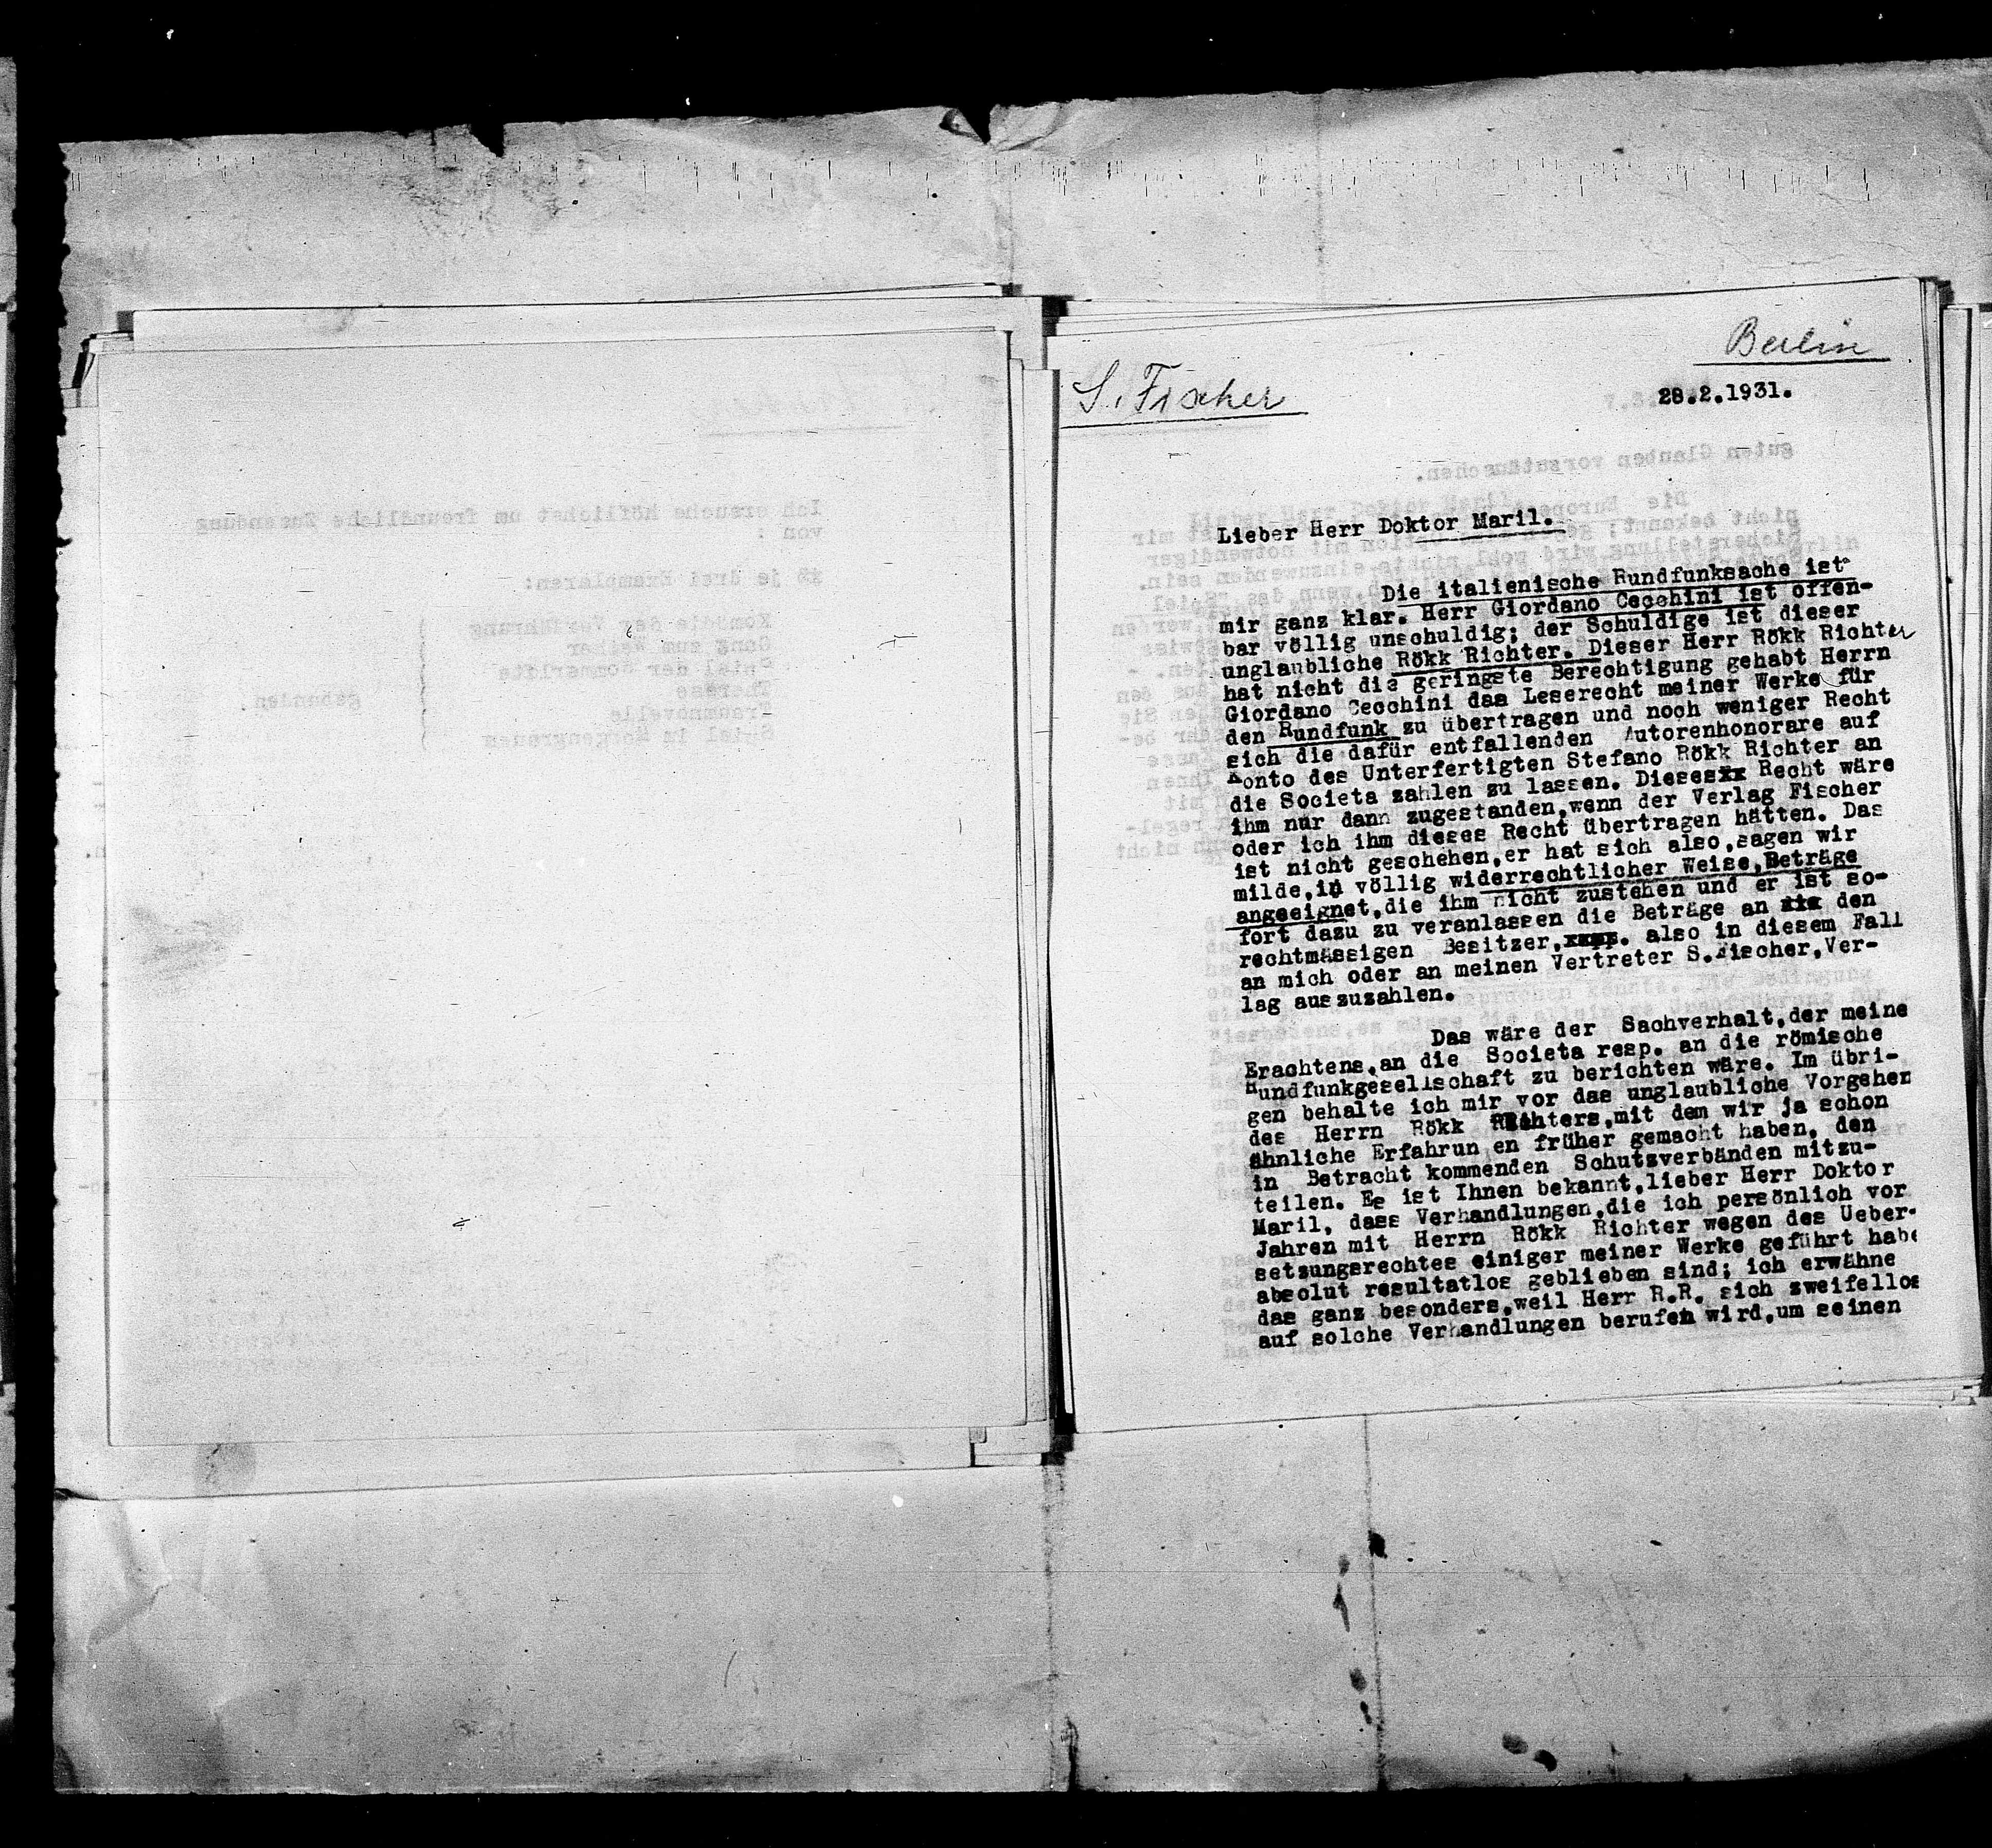 Berlin
S. Fischer
28.2.1931.
Lieber Herr Doktor Maril.
Die italienische Rundfunksache ist
mir ganz klar. Herr Giordano Cecchini ist offen-
bar völlig unschuldig; der Schuldige ist dieser
unglaubliche Rökk Richter. Dieser Herr Rökk Richter
hat nicht die geringste Berechtigung gehabt Herrn
Giordano Cecchini das Leserecht meiner Werke für
den Rundfunk zu übertragen und noch weniger Recht
sich die dafür entfallenden Autorenhonorare auf
Konto des Unterfertigten Stefano Rökk Richter an
die Societa zahlen zu lassen. Dieses Recht wäre
ihm nur dann zugestanden,wenn der Verlag Fischer
oder ich ihm dieses Recht übertragen hätten. Das
ist nicht geschehen,er hat sich also,sagen wir
milde,in völlig widerrechtlicher Weise,Beträge
angeeignet,die ihm nicht zustehen und er ist so-
fort dazu zu veranlassen die Beträge an den
rechtmässigen Besitzer, also in diesem Fall
an mich oder an meinen Vertreter S.Fischer,Ver-
lag auszuzahlen.
Das wäre der Sachverhalt,der meine
Erachtens,an die Societa resp. an die römische
Rundfunkgesellschaft zu berichten wäre. Im übri-
gen behalte ich mir vor das unglaubliche Vorgehen
des Herrn Rökk Richters,mit dem wir ja schon
ähnliche Erfahrun en früher gemacht haben, den
in Betracht kommenden Schutzverbänden mitzu-
teilen. Es ist Ihnen bekannt,lieber Herr Doktor
Maril, dass Verhandlungen,die ich persönlich vor
Jahren mit Herrn Rökk Richter wegen des Ueber-
setzungsrechtes einiger meiner Werke geführt habe
absolut resultatlos geblieben sind; ich erwähne
das ganz besonders,weil Herr R.R. sich zweifellos
auf solche Verhandlungen berufen wird,um seinen